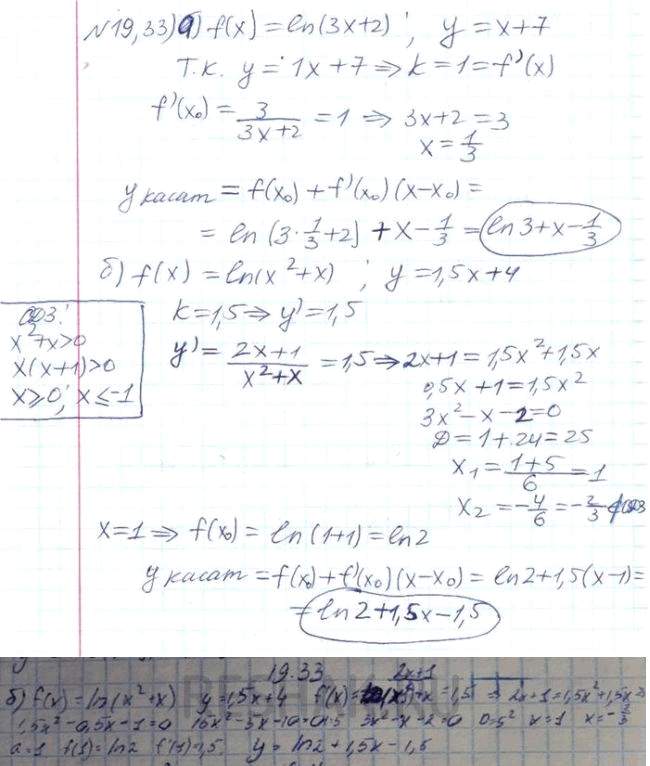 N19,33) а) f(x) = ln(3x+2) ; y = x+7
Т.к. y = 1x+7 ⇒ k = 1 = f'(x)
f'(x₀) = 3/(3x+2) = 1 ⇒ 3x+2 = 3
x = 1/3
y касат = f(x₀) + f'(x₀)(x-x₀) =
= ln(3·1/3+2) + x - 1/3 = ln3+x-1/3
б) f(x) = ln(x²+x) ; y = 1,5x+4
k = 1,5 ⇒ y' = 1,5
ОДЗ:
x²+x>0
x(x+1)>0
x⩾0; x⩽-1
y' = (2x+1)/(x²+x) = 1,5 ⇒ 2x+1 = 1,5x²+1,5x
0,5x+1 = 1,5x²
3x²-x-2=0
D = 1+24 = 25
x₁ = (1+5)/6 = 1
x₂ = -4/6 = -2/3 ∉ ОДЗ
x=1 ⇒ f(x₀) = ln(1+1) = ln2
y касат = f(x₀)+f'(x₀)(x-x₀) = ln2+1,5(x-1) =
= ln2+1,5x-1,5
19.33
б) f(x) = ln(x²+x) y=1,5x+4 f'(x) = (2x+1)/(x²+x) = 1,5 ⇒ 2x+1 = 1,5x²+1,5x
1,5x²-0,5x-1=0 15x²-5x-10=0 |:5 3x²-x-2=0 D=5² x=1 x=-2/3
a=1 f(1)=ln2 f'(1)=1,5 y = ln2+1,5x-1,5